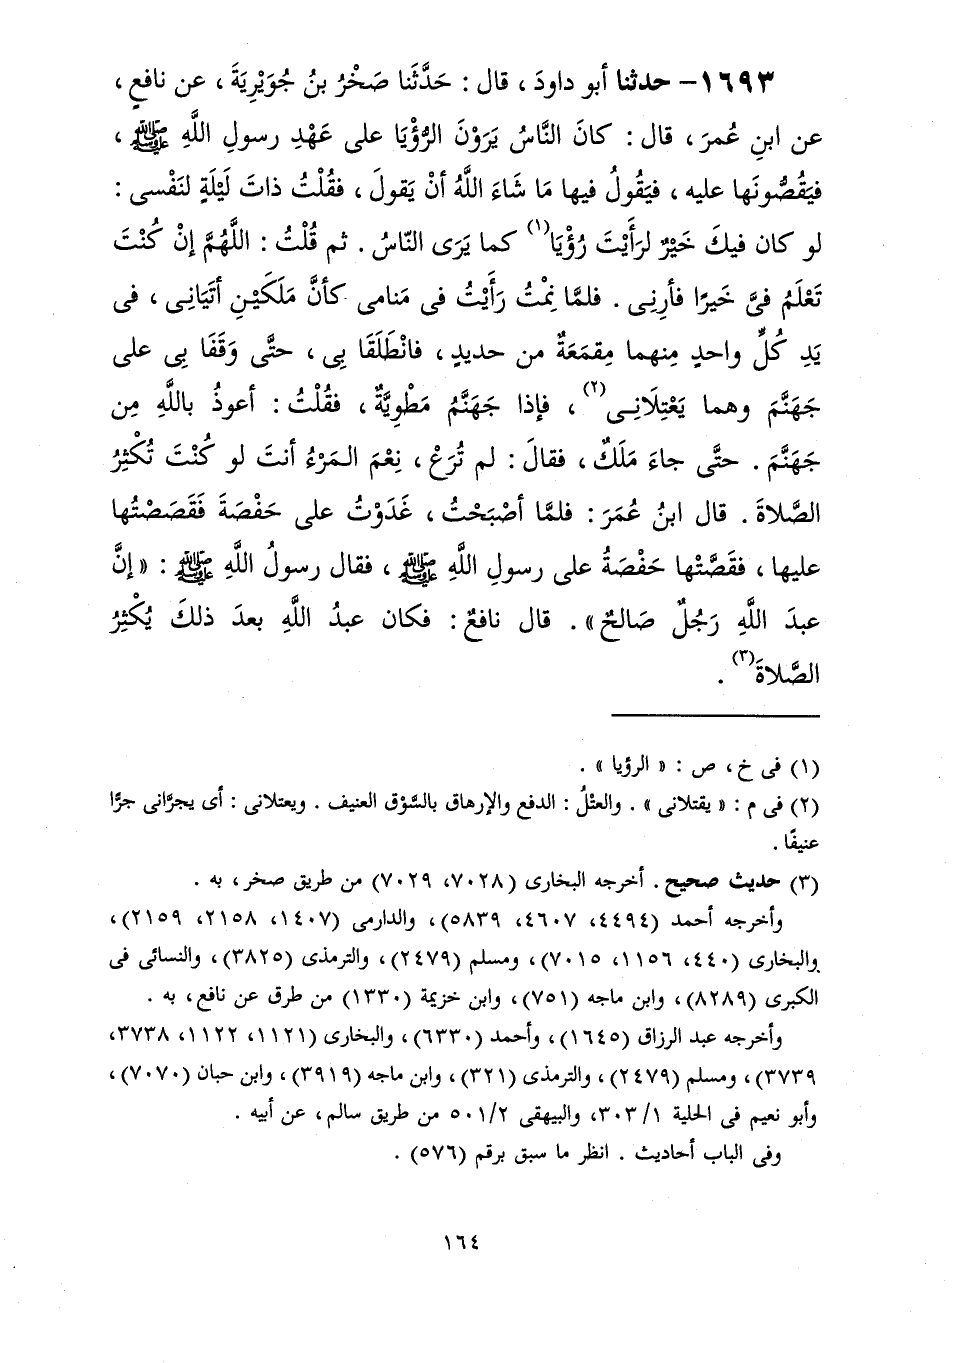 ١٦٩٣- حدثنا أبو داودَ ، قال : حَدَّثَنا صَخْرُ بنُ جُوَيْرِيَةَ ، عن نافعٍ ،
عن ابنِ عُمرَ ، قال : كانَ النَّاسُ يَرَوْنَ الرُّؤْيَا على عَهْدِ رسولِ اللَّهِ ﷺ ،
فيَقُصُّونَها عليه ، فيَقُولُ فيها مَا شَاءَ اللَّهُ أنْ يَقولَ ، فقُلْتُ ذاتَ لَيْلَةٍ لنَفْسى :
لو كان فيكَ خَيْرٌ لرَأَيْتَ رُؤْيَا(١) كما يَرَى النّاسُ . ثم قُلْتُ : اللَّهُمَّ إنْ كُنْتَ
تَعْلَمُ فىَّ خَيرًا فأرِنِى . فلمَّا نِمْتُ رَأَيْتُ فى مَنامى كأنَّ مَلَكَيْنِ أتَيَانِى ، فى
يَدِ كُلِّ واحدٍ مِنهما مِقمَعَةٌ من حديدٍ ، فانْطَلَقَا بِى ، حتَّى وَقَفَا بِى على
جَهَنَّمَ وهما يَعْتِلَانِى(٢) ، فإذا جَهَنَّمُ مَطْوِيَّةٌ ، فقُلْتُ : أعوذُ باللَّهِ مِن
جَهَنَّمَ . حتَّى جاءَ مَلَكٌ ، فقالَ : لم تُرَعْ ، نِعْمَ المَرْءُ أنتَ لو كُنْتَ تُكْثِرُ
الصَّلاةَ . قال ابنُ عُمَرَ : فلمَّا أصْبَحْتُ ، غَدَوْتُ على حَفْصَةَ فَقَصَصْتُها
عليها ، فقَصَّتْها حَفْصَةُ على رسولِ اللَّهِ ﷺ ، فقال رسولُ اللَّهِ ﷺ : « إنَّ
عبدَ اللَّهِ رَجُلٌ صَالحٌ » . قال نافعٌ : فكان عبدُ اللَّهِ بعدَ ذلكَ يُكْثِرُ
الصَّلاةَ(٣) .
(١) فى خ ، ص : « الرؤيا » .
(٢) فى م : « يقتلانى » . والعتْلُ : الدفع والإرهاق بالسَّوْق العنيف . ويعتلانى : أى يجرَّانى جرًّا
عنيفًا .
(٣) حديث صحيح . أخرجه البخارى (٧٠٢٨، ٧٠٢٩) من طريق صخر ، به .
وأخرجه أحمد (٤٤٩٤، ٤٦٠٧، ٥٨٣٩)، والدارمى (١٤٠٧، ٢١٥٨، ٢١٥٩)،
والبخارى (٤٤٠، ١١٥٦، ٧٠١٥)، ومسلم (٢٤٧٩)، والترمذى (٣٨٢٥)، والنسائى فى
الكبرى (٨٢٨٩)، وابن ماجه (٧٥١)، وابن خزيمة (١٣٣٠) من طرق عن نافع ، به .
وأخرجه عبد الرزاق (١٦٤٥)، وأحمد (٦٣٣٠)، والبخارى (١١٢١، ١١٢٢، ٣٧٣٨،
٣٧٣٩)، ومسلم (٢٤٧٩)، والترمذى (٣٢١)، وابن ماجه (٣٩١٩)، وابن حبان (٧٠٧٠)،
وأبو نعيم فى الحلية ٣٠٣/١، والبيهقى ٥٠١/٢ من طريق سالم ، عن أبيه .
وفى الباب أحاديث . انظر ما سبق برقم (٥٧٦) .
١٦٤